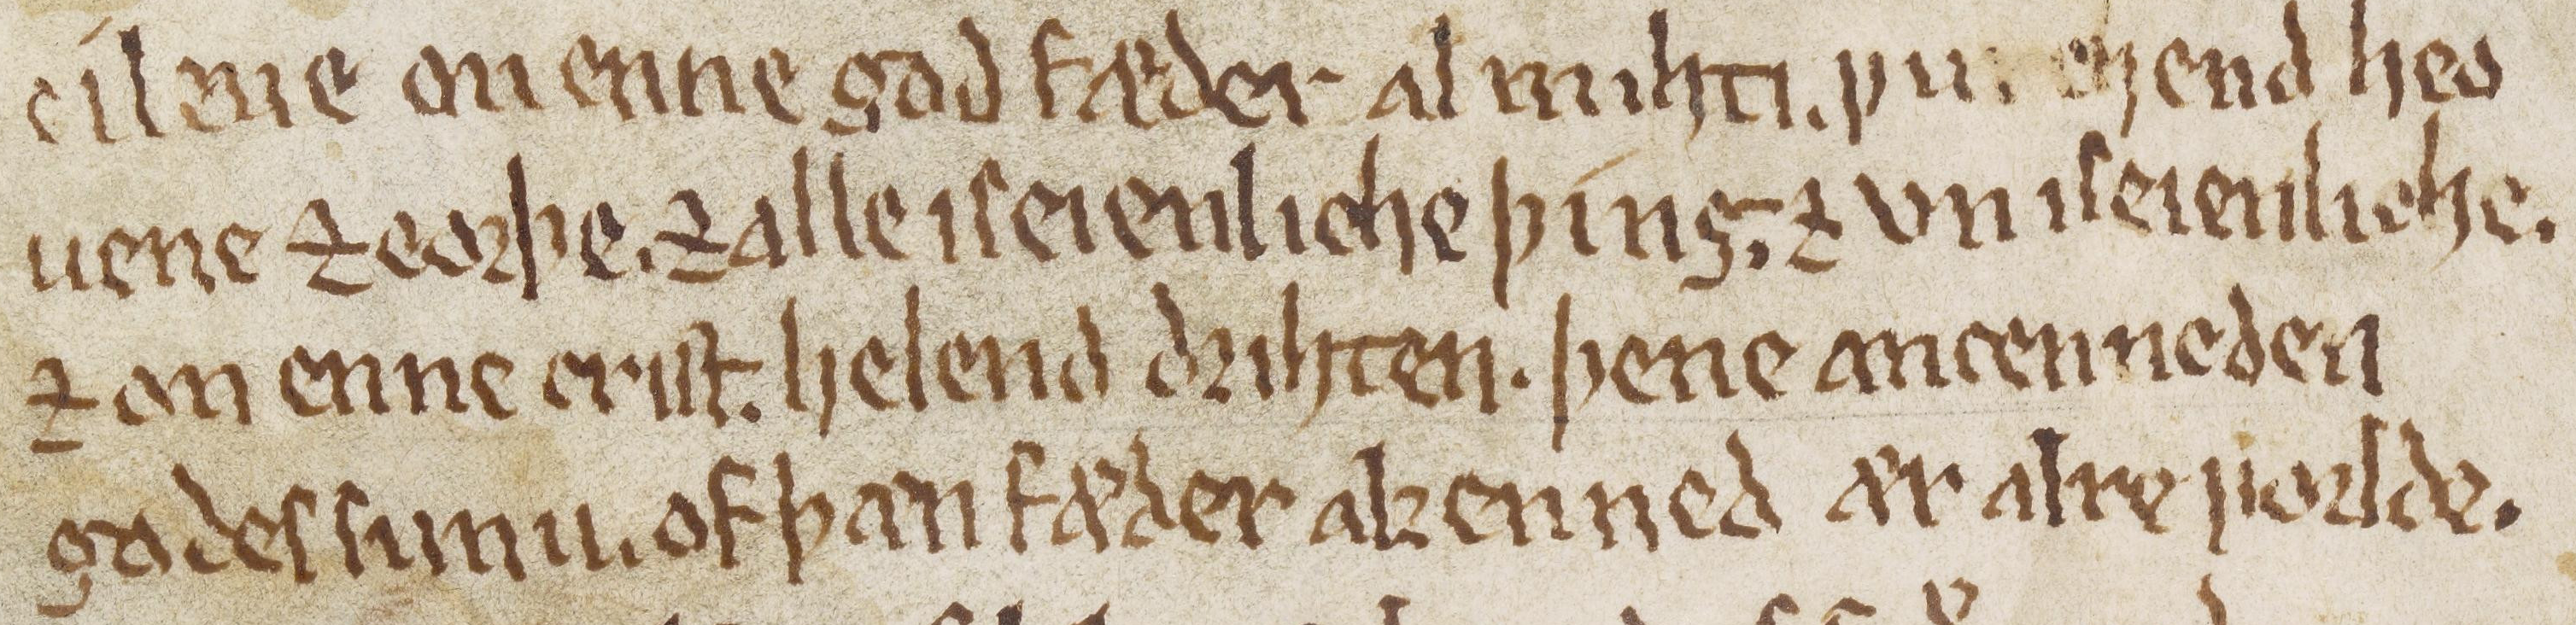 cíleue on enne god fæder almihti. heo
uene ⁊ eorþe. ⁊ alle iseienliche þíng; ⁊ vniseienliche.
⁊ on enne crist. helend drihten. þene ancenneden
godes sunu. of þan fæder akenned ær alre ƿorlde.